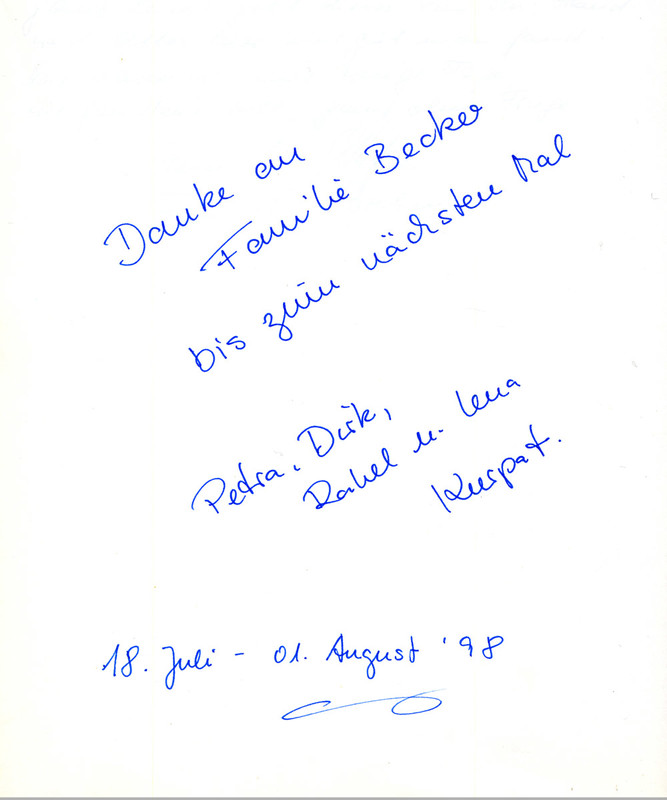 Danke an
Familie Becker
bis zum nächsten Mal
Petra, Dirk,
Rahel u. Lena
Kurpat.
18. Juli - 01. August '98